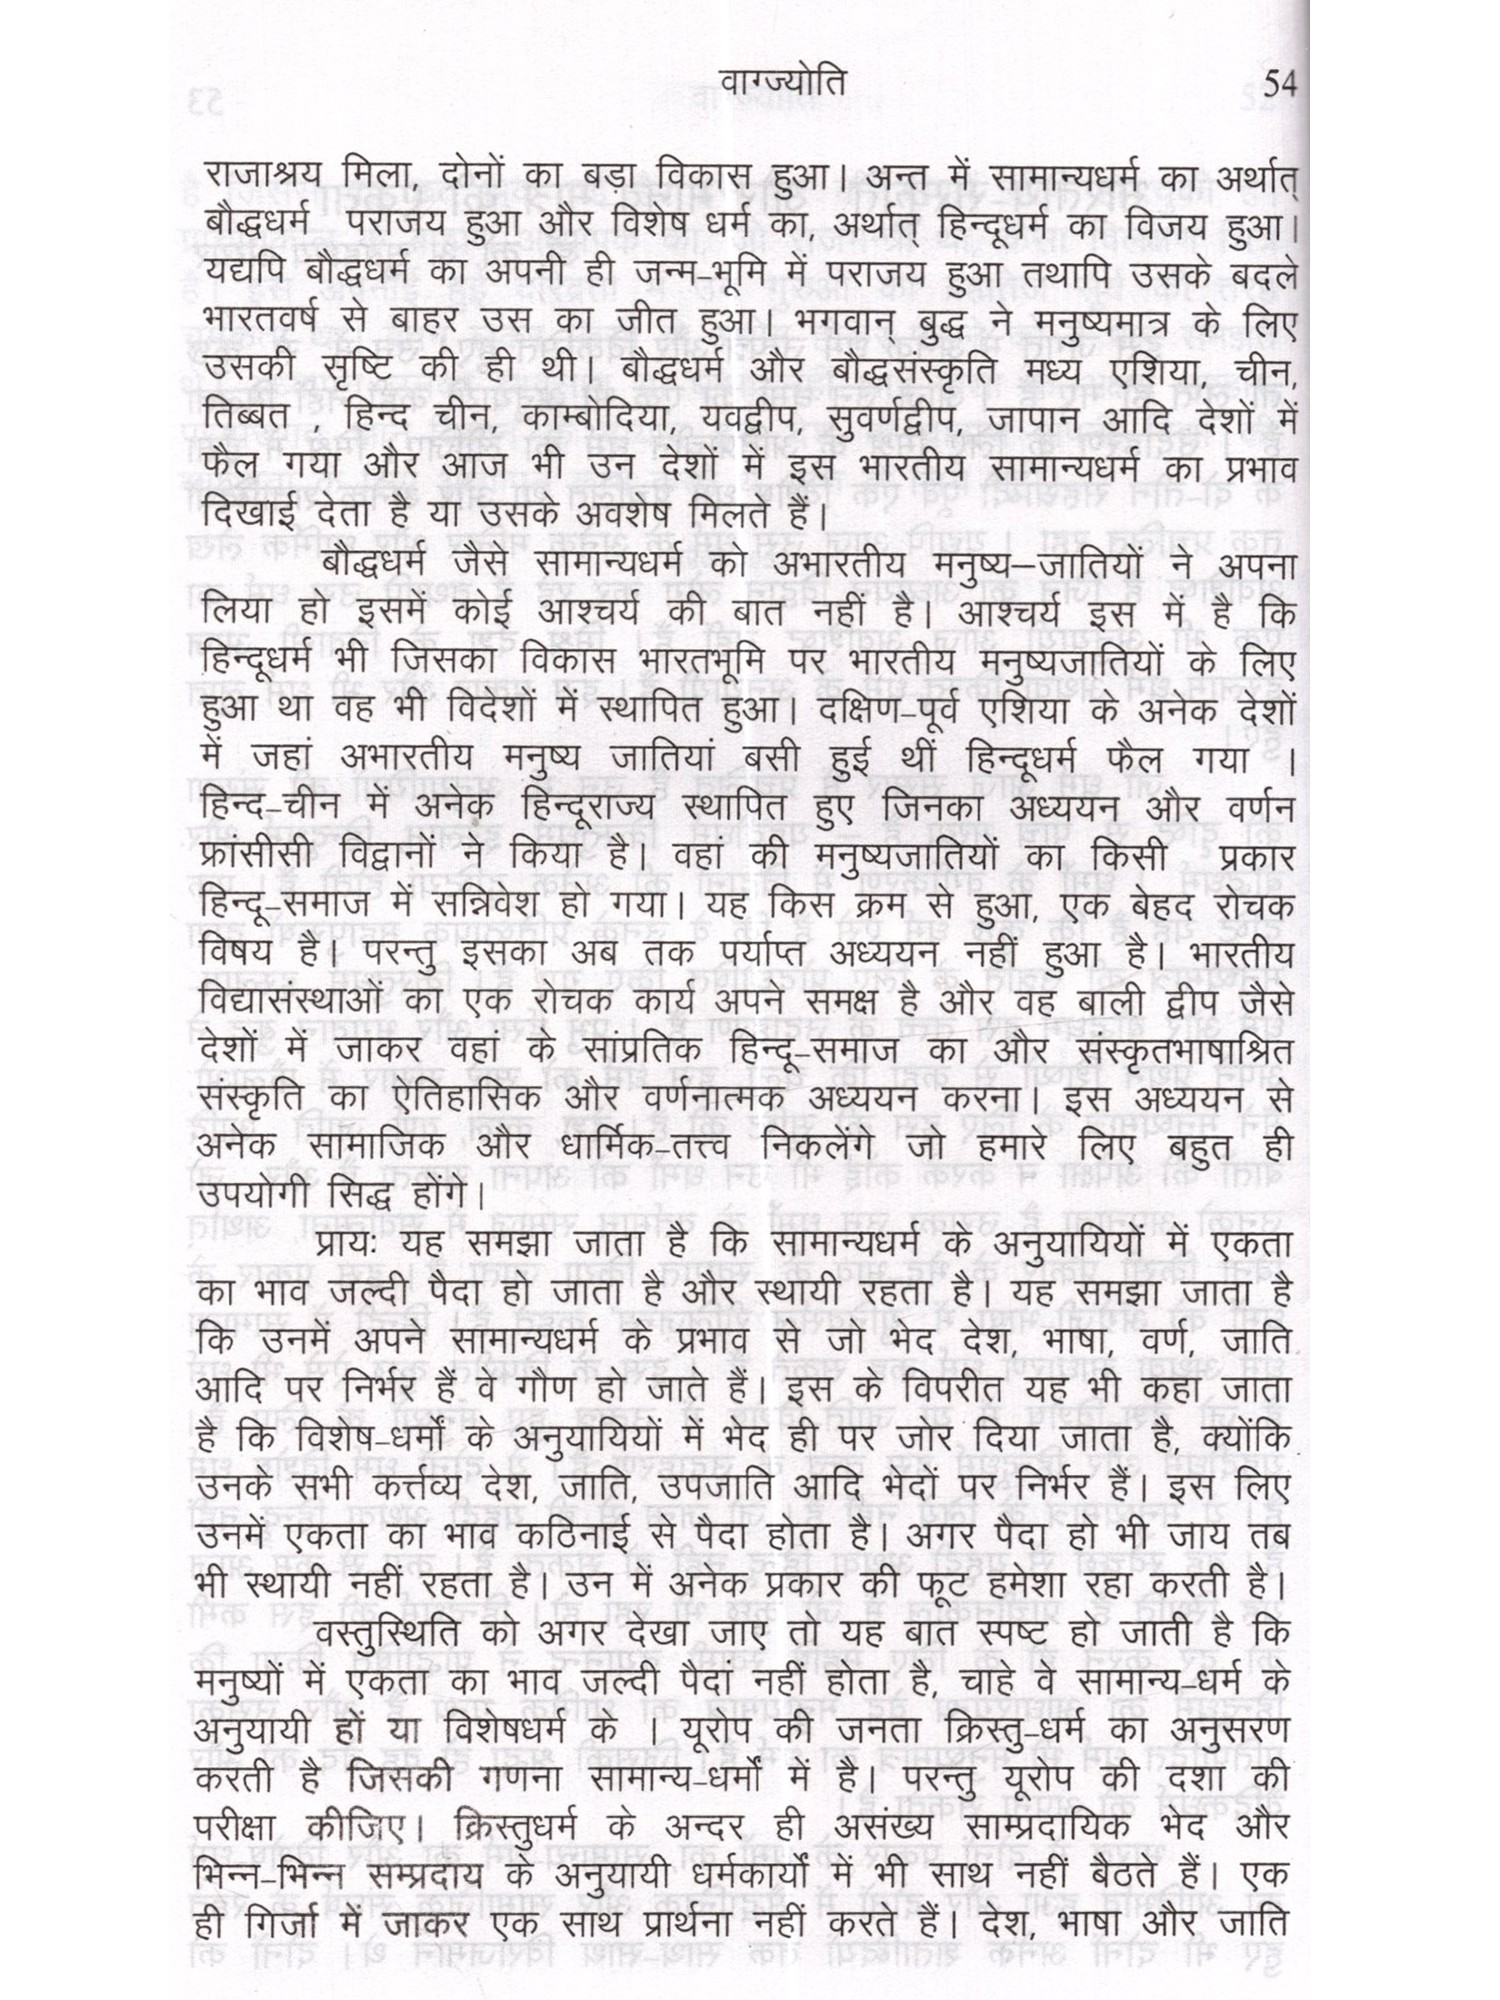 वाग्ज्योति 54
राजाश्रय मिला, दोनों का बड़ा विकास हुआ। अन्त में सामान्यधर्म का अर्थात्
बौद्धधर्म पराजय हुआ और विशेष धर्म का, अर्थात् हिन्दूधर्म का विजय हुआ।
यद्यपि बौद्धधर्म का अपनी ही जन्म-भूमि में पराजय हुआ तथापि उसके बदले
भारतवर्ष से बाहर उस का जीत हुआ। भगवान् बुद्ध ने मनुष्यमात्र के लिए
उसकी सृष्टि की ही थी। बौद्धधर्म और बौद्धसंस्कृति मध्य एशिया, चीन,
तिब्बत , हिन्द चीन, काम्बोदिया, यवद्वीप, सुवर्णद्वीप, जापान आदि देशों में
फैल गया और आज भी उन देशों में इस भारतीय सामान्यधर्म का प्रभाव
दिखाई देता है या उसके अवशेष मिलते हैं।
बौद्धधर्म जैसे सामान्यधर्म को अभारतीय मनुष्य–जातियों ने अपना
लिया हो इसमें कोई आश्चर्य की बात नहीं है। आश्चर्य इस में है कि
हिन्दूधर्म भी जिसका विकास भारतभूमि पर भारतीय मनुष्यजातियों के लिए
हुआ था वह भी विदेशों में स्थापित हुआ। दक्षिण-पूर्व एशिया के अनेक देशों
में जहां अभारतीय मनुष्य जातियां बसी हुई थीं हिन्दूधर्म फैल गया ।
हिन्द-चीन में अनेक हिन्दूराज्य स्थापित हुए जिनका अध्ययन और वर्णन
फ्रांसीसी विद्वानों ने किया है। वहां की मनुष्यजातियों का किसी प्रकार
हिन्दू-समाज में सन्निवेश हो गया। यह किस क्रम से हुआ, एक बेहद रोचक
विषय है। परन्तु इसका अब तक पर्याप्त अध्ययन नहीं हुआ है। भारतीय
विद्यासंस्थाओं का एक रोचक कार्य अपने समक्ष है और वह बाली द्वीप जैसे
देशों में जाकर वहां के सांप्रतिक हिन्दू-समाज का और संस्कृतभाषाश्रित
संस्कृति का ऐतिहासिक और वर्णनात्मक अध्ययन करना। इस अध्ययन से
अनेक सामाजिक और धार्मिक-तत्त्व निकलेंगे जो हमारे लिए बहुत ही
उपयोगी सिद्ध होंगे।
प्रायः यह समझा जाता है कि सामान्यधर्म के अनुयायियों में एकता
का भाव जल्दी पैदा हो जाता है और स्थायी रहता है। यह समझा जाता है
कि उनमें अपने सामान्यधर्म के प्रभाव से जो भेद देश, भाषा, वर्ण, जाति
आदि पर निर्भर हैं वे गौण हो जाते हैं। इस के विपरीत यह भी कहा जाता
है कि विशेष-धर्मों के अनुयायियों में भेद ही पर जोर दिया जाता है, क्योंकि
उनके सभी कर्त्तव्य देश, जाति, उपजाति आदि भेदों पर निर्भर हैं। इस लिए
उनमें एकता का भाव कठिनाई से पैदा होता है। अगर पैदा हो भी जाय तब
भी स्थायी नहीं रहता है। उन में अनेक प्रकार की फूट हमेशा रहा करती है।
वस्तुस्थिति को अगर देखा जाए तो यह बात स्पष्ट हो जाती है कि
मनुष्यों में एकता का भाव जल्दी पैदां नहीं होता है, चाहे वे सामान्य-धर्म के
अनुयायी हों या विशेषधर्म के । यूरोप की जनता क्रिस्तु-धर्म का अनुसरण
करती है जिसकी गणना सामान्य-धर्मों में है। परन्तु यूरोप की दशा की
परीक्षा कीजिए। क्रिस्तुधर्म के अन्दर ही असंख्य साम्प्रदायिक भेद और
भिन्न-भिन्न सम्प्रदाय के अनुयायी धर्मकार्यों में भी साथ नहीं बैठते हैं। एक
ही गिर्जा में जाकर एक साथ प्रार्थना नहीं करते हैं। देश, भाषा और जाति